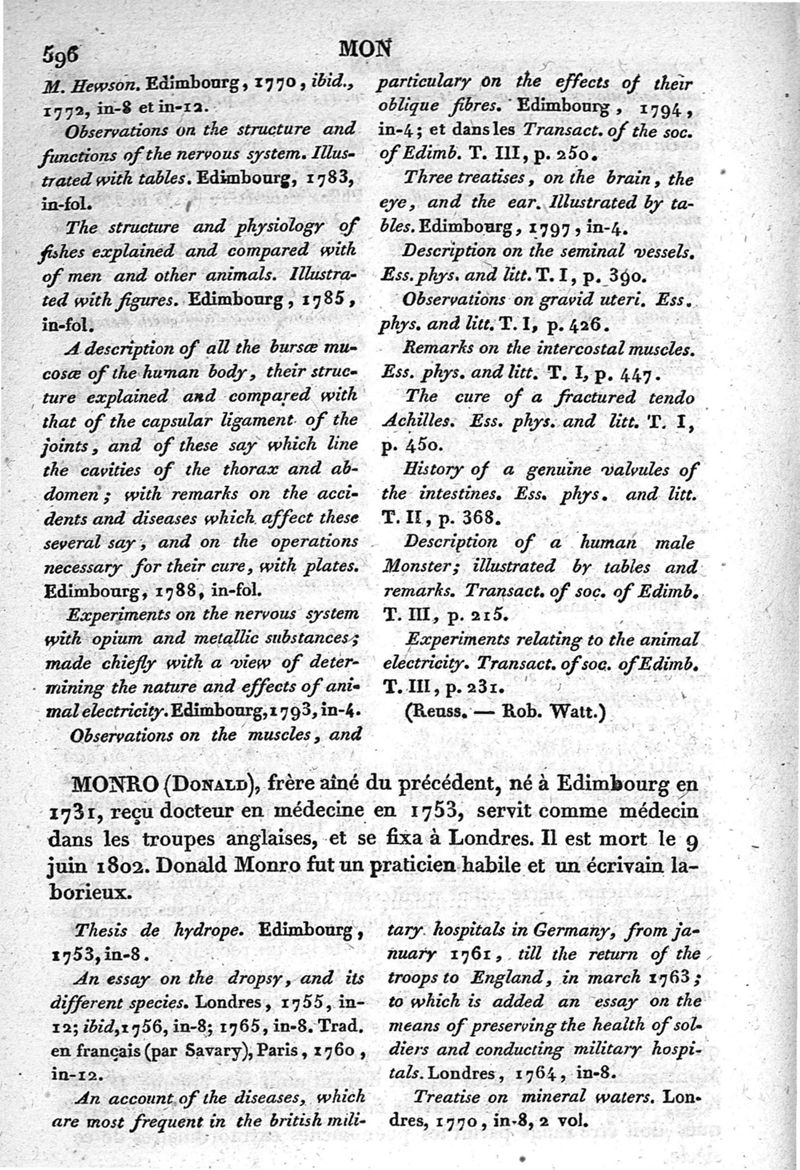 596
MON
M. Hewson. Edimbourg, 1770, ibid.,
1772, in-8 et in-12.
Observations on the structure and
functions of the nervous system. Illus-
trated with tables. Edimbourg, 1783,
in-fol.
The structure and physiology of
fishes explained and compared with
of men and other animals. Illustra-
ted with figures. Edimbourg, 1785,
in-fol.
A description of all the bursæ mu-
cosæ of the human body, their struc-
ture explained and compared with
that of the capsular ligament of the
joints, and of these say which line
the cavities of the thorax and ab-
domen; with remarks on the acci-
dents and diseases which affect these
several say, and on the operations
necessary for their cure, with plates.
Edimbourg, 1788, in-fol.
Experiments on the nervous system
with opium and metallic substances;
made chiefly with a view of deter-
mining the nature and effects of ani-
mal electricity. Edimbourg, 1793, in-4.
Observations on the muscles, and
particulary on the effects of their
oblique fibres. Edimbourg, 1794,
in-4; et dans les Transact. of the soc.
of Edimb. T. III, p. 250.
Three treatises, on the brain, the
eye, and the ear. Illustrated by ta-
bles. Edimbourg, 1797, in-4.
Description on the seminal vessels.
Ess. phys. and litt. T. I, p. 390.
Observations on gravid uteri. Ess.
phys. and litt. T. I, p. 426.
Remarks on the intercostal muscles.
Ess. phys. and litt. T. I, p. 447.
The cure of a fractured tendo
Achilles. Ess. phys. and litt. T. I,
p. 450.
History of a genuine valvules of
the intestines. Ess. phys. and litt.
T. II, p. 368.
Description of a human male
Monster; illustrated by tables and
remarks. Transact. of soc. of Edimb.
T. III, p. 215.
Experiments relating to the animal
electricity. Transact. of soc. of Edimb.
T. III, p. 231.
(Reuss. — Rob. Watt.)
MONRO (DONALD), frère aîné du précédent, né à Edimbourg en
1731, reçu docteur en médecine en 1753, servit comme médecin
dans les troupes anglaises, et se fixa à Londres. Il est mort le 9
juin 1802. Donald Monro fut un praticien habile et un écrivain la-
borieux.
Thesis de hydrope. Edimbourg,
1753, in-8.
An essay on the dropsy, and its
different species. Londres, 1755, in-
12; ibid, 1756, in-8; 1765, in-8. Trad.
en français (par Savary), Paris, 1760,
in-12.
An account of the diseases, which
are most frequent in the british mili-
tary hospitals in Germany, from ja-
nuary 1761, till the return of the
troops to England, in march 1763;
to which is added an essay on the
means of preserving the health of sol-
diers and conducting military hospi-
tals. Londres, 1764, in-8.
Treatise on mineral waters. Lon-
dres, 1770, in-8, 2 vol.